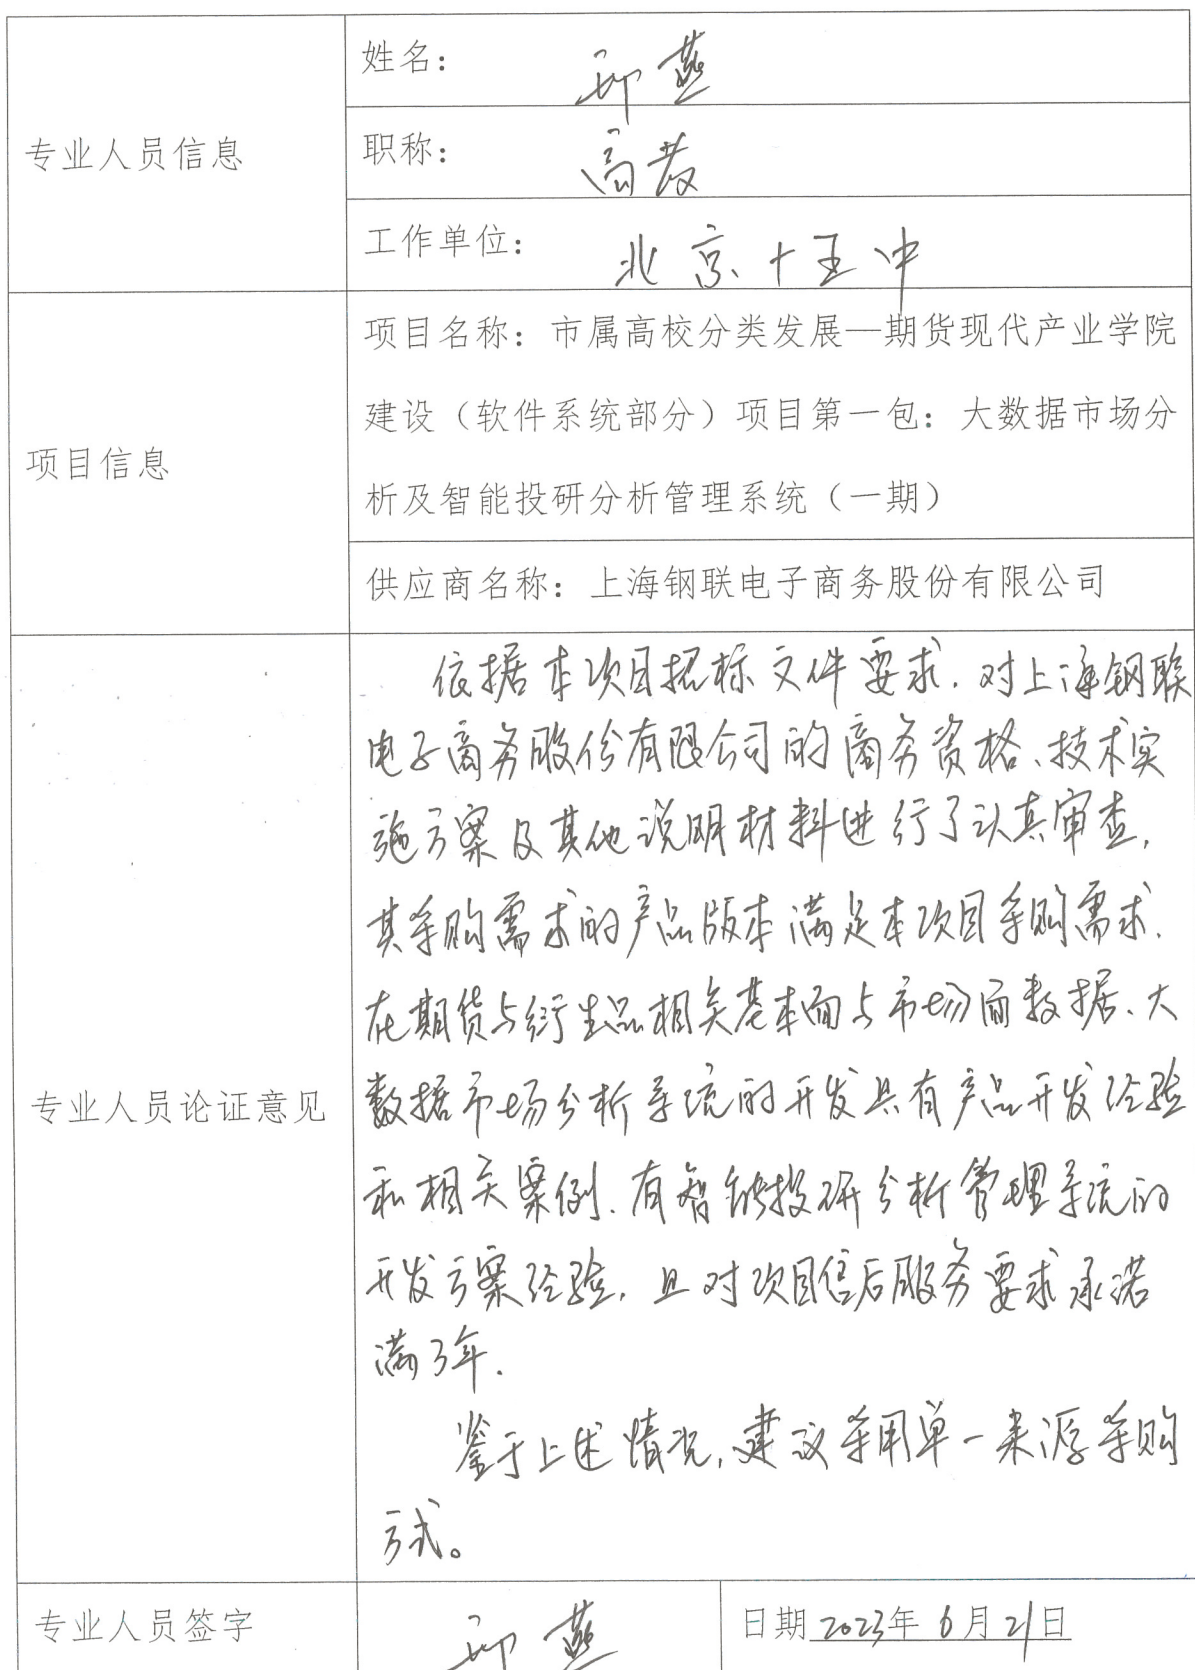 专业人员信息
姓名：邱燕
职称：高教
工作单位：北京十五中
项目信息
项目名称：市属高校分类发展—期货现代产业学院
建设（软件系统部分）项目第一包：大数据市场分
析及智能投研分析管理系统（一期）
供应商名称：上海钢联电子商务股份有限公司
专业人员论证意见
依据本项目招标文件要求，对上海钢联
电子商务股份有限公司的商务资格、技术实
施方案及其他说明材料进行了认真审查，
其采购需求的产品版本满足本项目采购需求，
在期货与衍生品相关基本面与市场面数据、大
数据市场分析系统的开发具有产品开发经验
和相关案例，有智能投研分析管理系统的
开发方案经验，且对项目售后服务要求承诺
满3年.
鉴于上述情况，建议采用单一来源采购
方式。
专业人员签字
邱燕
日期2023年6月21日